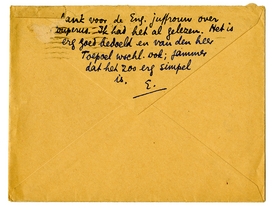 kant voor de Eng. juffrouw over
Ik had het al gelezen. Het is
erg goed bedoeld en van den heer
Toepoel wschl. ook; jammer
dat het zoo erg simpel
is.
E.